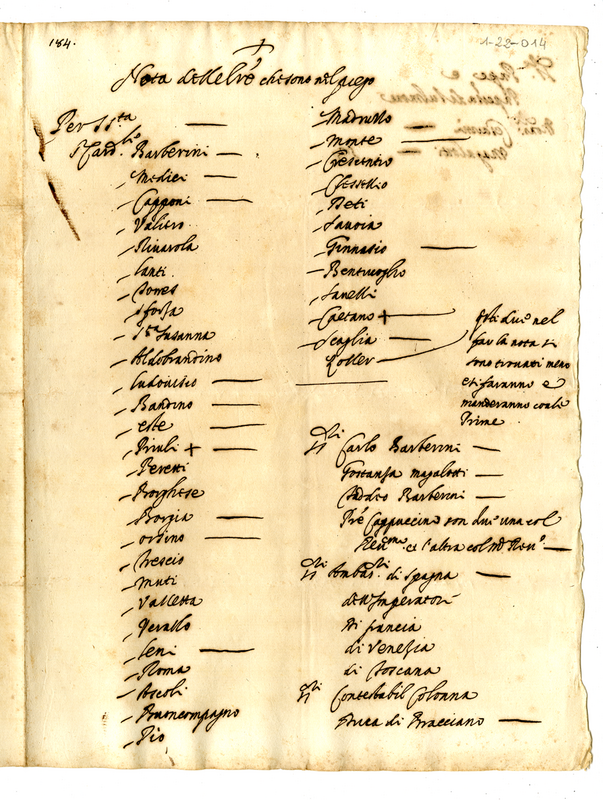 184.
1-22-014
Nota delle lre che sono nel piego
Per SSta
SCard.li Barberini
Medici
Capponi
Valiero
Rivarola
Santi
Torres
Sforza
Sta Susanna
Aldobrandino
Ludovisio
Bandino
este
Priuli +
Peretti
Borghese
Borgia
orsino
Trescio
Muti
Valletta
Verallo
Leni
Roma
Ascoli
Buoncompagno
Pio
Madruzzo
Monte
Crescentio
Clesselio
Deti
Savoia
Ginnasio
Bentivoglio
Savelli
Caetano +
Scaglia
Zoller
qsti duo nel
far la nota si
sono trovati meno
et si faranno e
manderanno con le
Prime
Carlo Barberini
Costanza magalotti
Barberini
Pre Cappuccino son due una col
et l'altra col
Ambas.ri di Spagna
dell'Imperatore
di francia
di Venezia
di Toscana
Contestabil Colonna
Duca di Bracciano